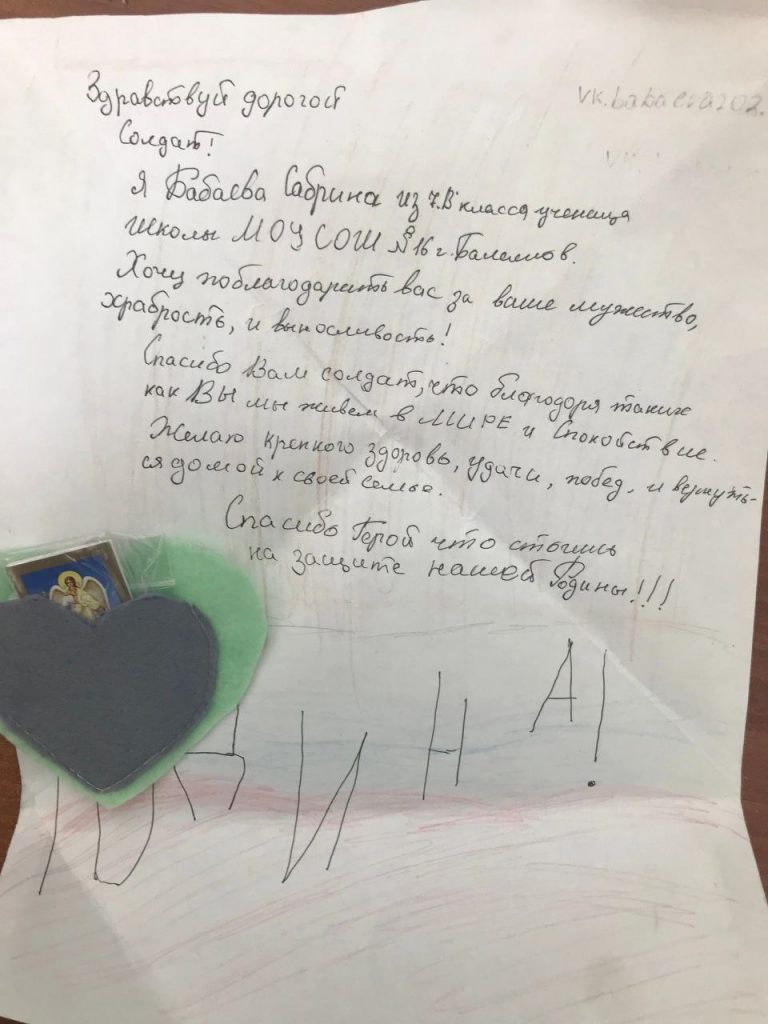 Здравствуй дорогой
vk.babaeva202.
Солдат!
Я Бабаева Сабрина из 7."В" класса ученица
школы МОУ СОШ №16 г.
Хочу поблагодарить вас за ваше мужество,
храбрость, и выносливость!
Спасибо Вам солдат, что благодоря таким
как ВЫ мы живем в МИРЕ и Спокойствие.
Желаю крепкого здоровь, удачи, побед, и вернуть-
ся домой к своей семье.
Спасибо Герой что стоишь
на защите нашей Родины!!!
ДИНА!